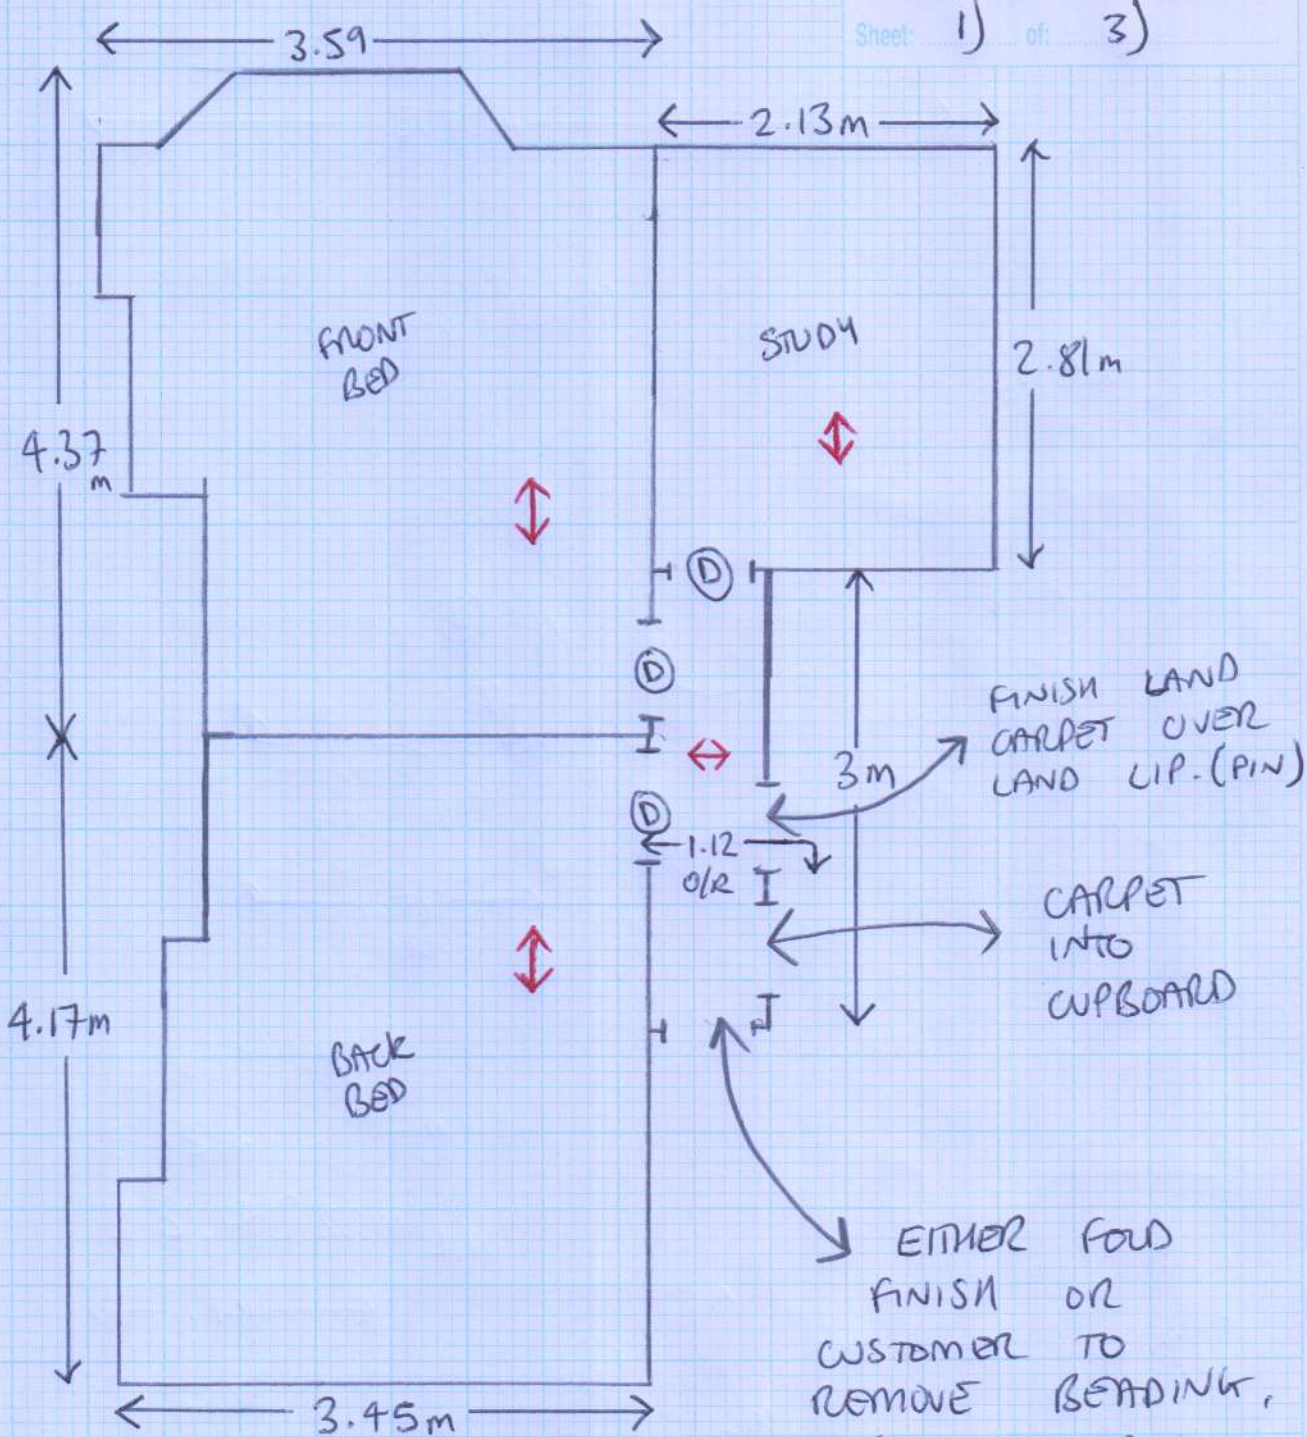 Sheet: 1) of: 3)
3.59
2.13m
FRONT
BED
STUDY
2.81m
4.37
m
D
D
FINISH LAND
CARPET OVER
LAND LIP. (PIN)
3m
D
1.12
O/R
CARPET
INTO
CUPBOARD
4.17m
BACK
BED
EITHER FOLD
FINISH OR
CUSTOMER TO
REMOVE BEADING.
3.45m